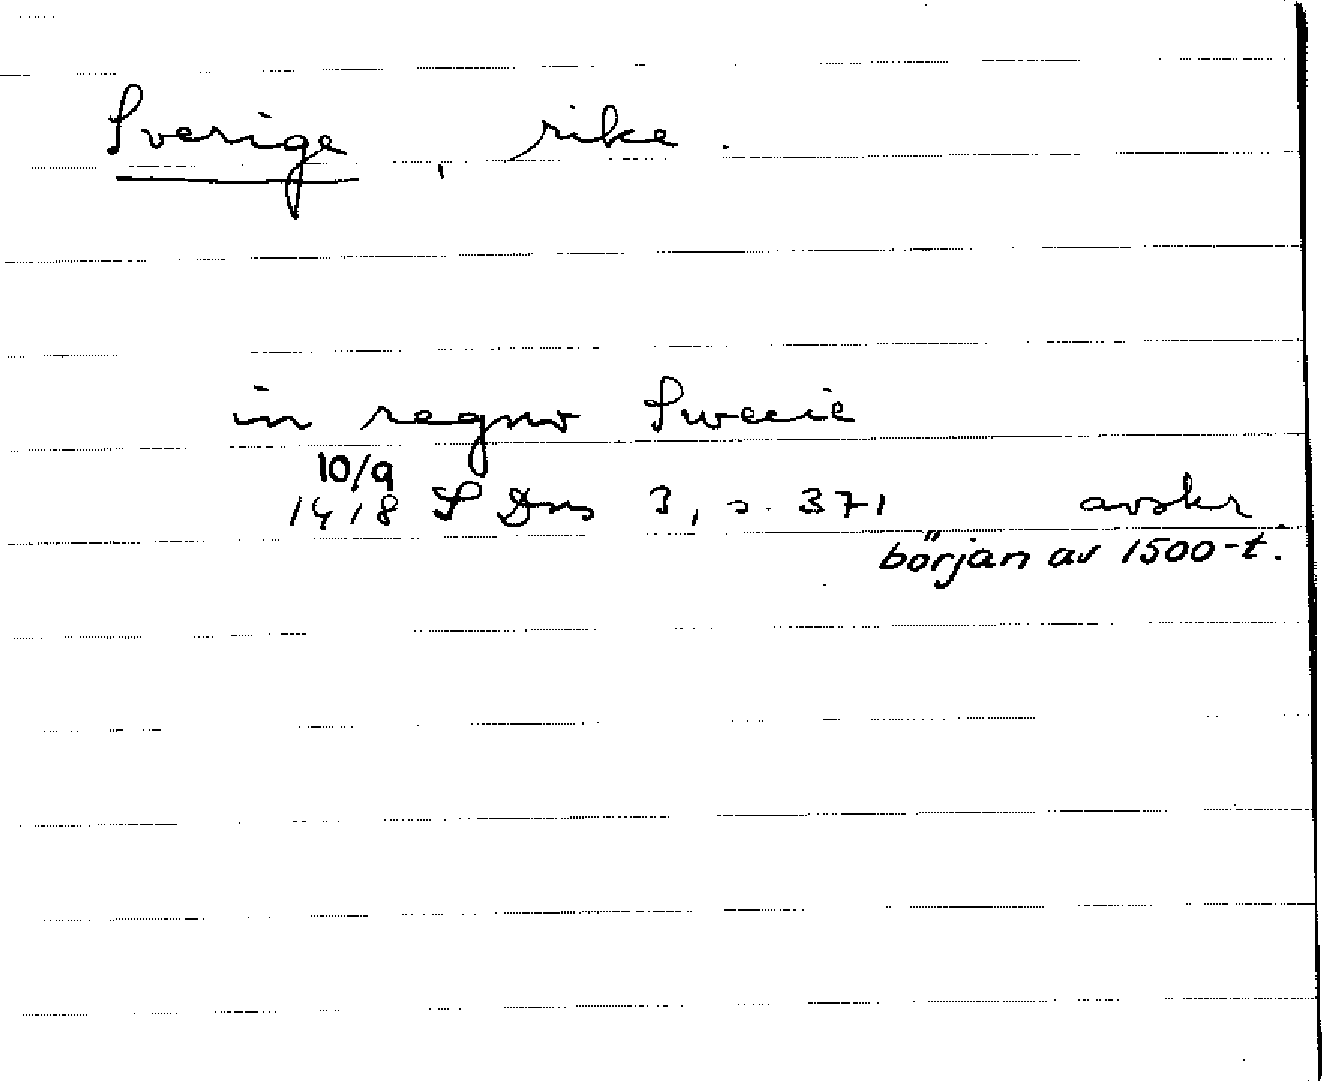 Sverige, rike.
in regno Swecie
10/9
1418 SDns 3, s. 371 avskr
början av 1500-t.